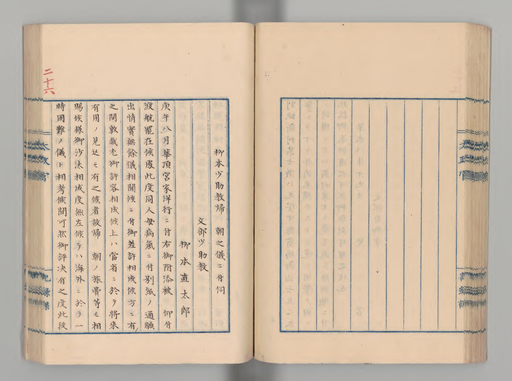 二十六
柳本少助教帰　朝之儀ニ付伺
文部少助教
柳本直太郎
庚午八月華頂宮家洋行ニ付右御附添被　仰付
渡航罷在候處此度同人母病氣ニ付別紙ノ通歎
出情實無餘儀相聞候ニ付御差許相成候方ニ有
之間敷哉尤御許容相成候上ハ當省ニ於テ将来
有用ノ見込モ有之候者故帰　朝ノ旅費等モ相
賜候様御沙汰相成度無左候テハ海外ニ於テ一
時困難ノ儀ト相考候間可然御評决有之度此段